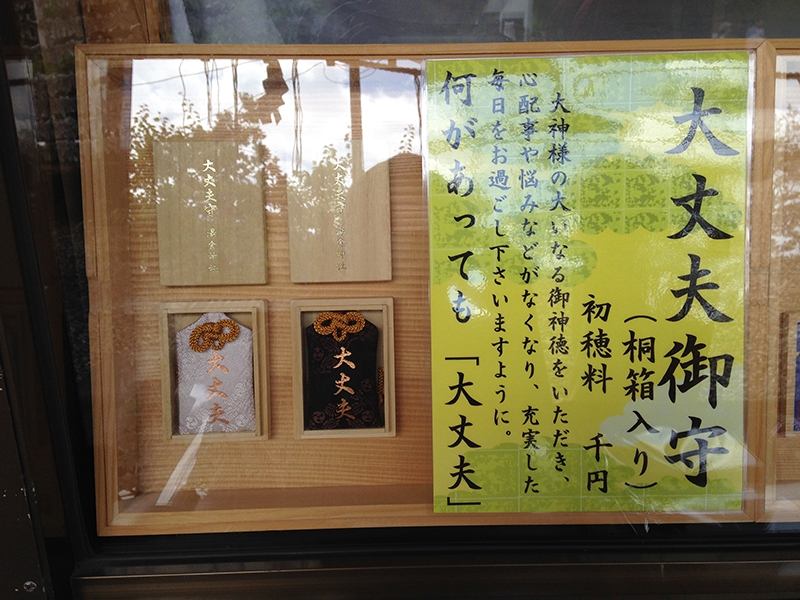 大丈夫御守
（桐箱入り）
初穂料 千円
大神様の大いなる御神徳をいただき、
心配事や悩みなどがなくなり、充実した
毎日をお過ごし下さいますように。
何があっても「大丈夫」
大丈夫守 湯倉神社
大丈夫
大丈夫